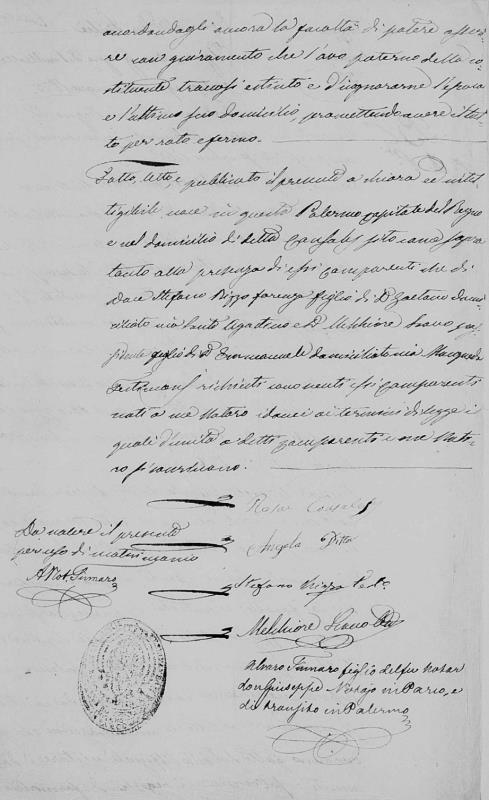 accordandogli ancora la facoltà di potere asseri
re con giuramento che l'avo paterno della co
stituente trovasi estinto e d'ignorarne l'epoca
e l'ultimo suo domicilio, promettendo avere il tut
to per rato e fermo.
Fatto, letto, e publicato il presente a chiara ed intel
ligibile voce in questa Palermo capitale del Regno
e nel domicilio di detta Consales sito come sopra
tanto alla presenza di essi comparenti che di
Don Stefano Rizzo figlio di D. Gaetano domi
ciliato via Santo Agostino e D. Melchiore
figlio di D. Emmanuele domiciliato via
Testimonj richiesti come nenti essi comparenti
noti a me Notaro idonei ai termini di legge i
quali d'unità a detti comparenti e me Nota
ro si
Rosa Consales
Angela Pitta
Da valere il presente
per uso di matrimonio
A Not. Tinnaro
Stefano Rizzo Te
Melchiore
Alvaro Tinnaro figlio del fu Notar
don Giuseppe Notajo in Parco, e
di transito in Palermo